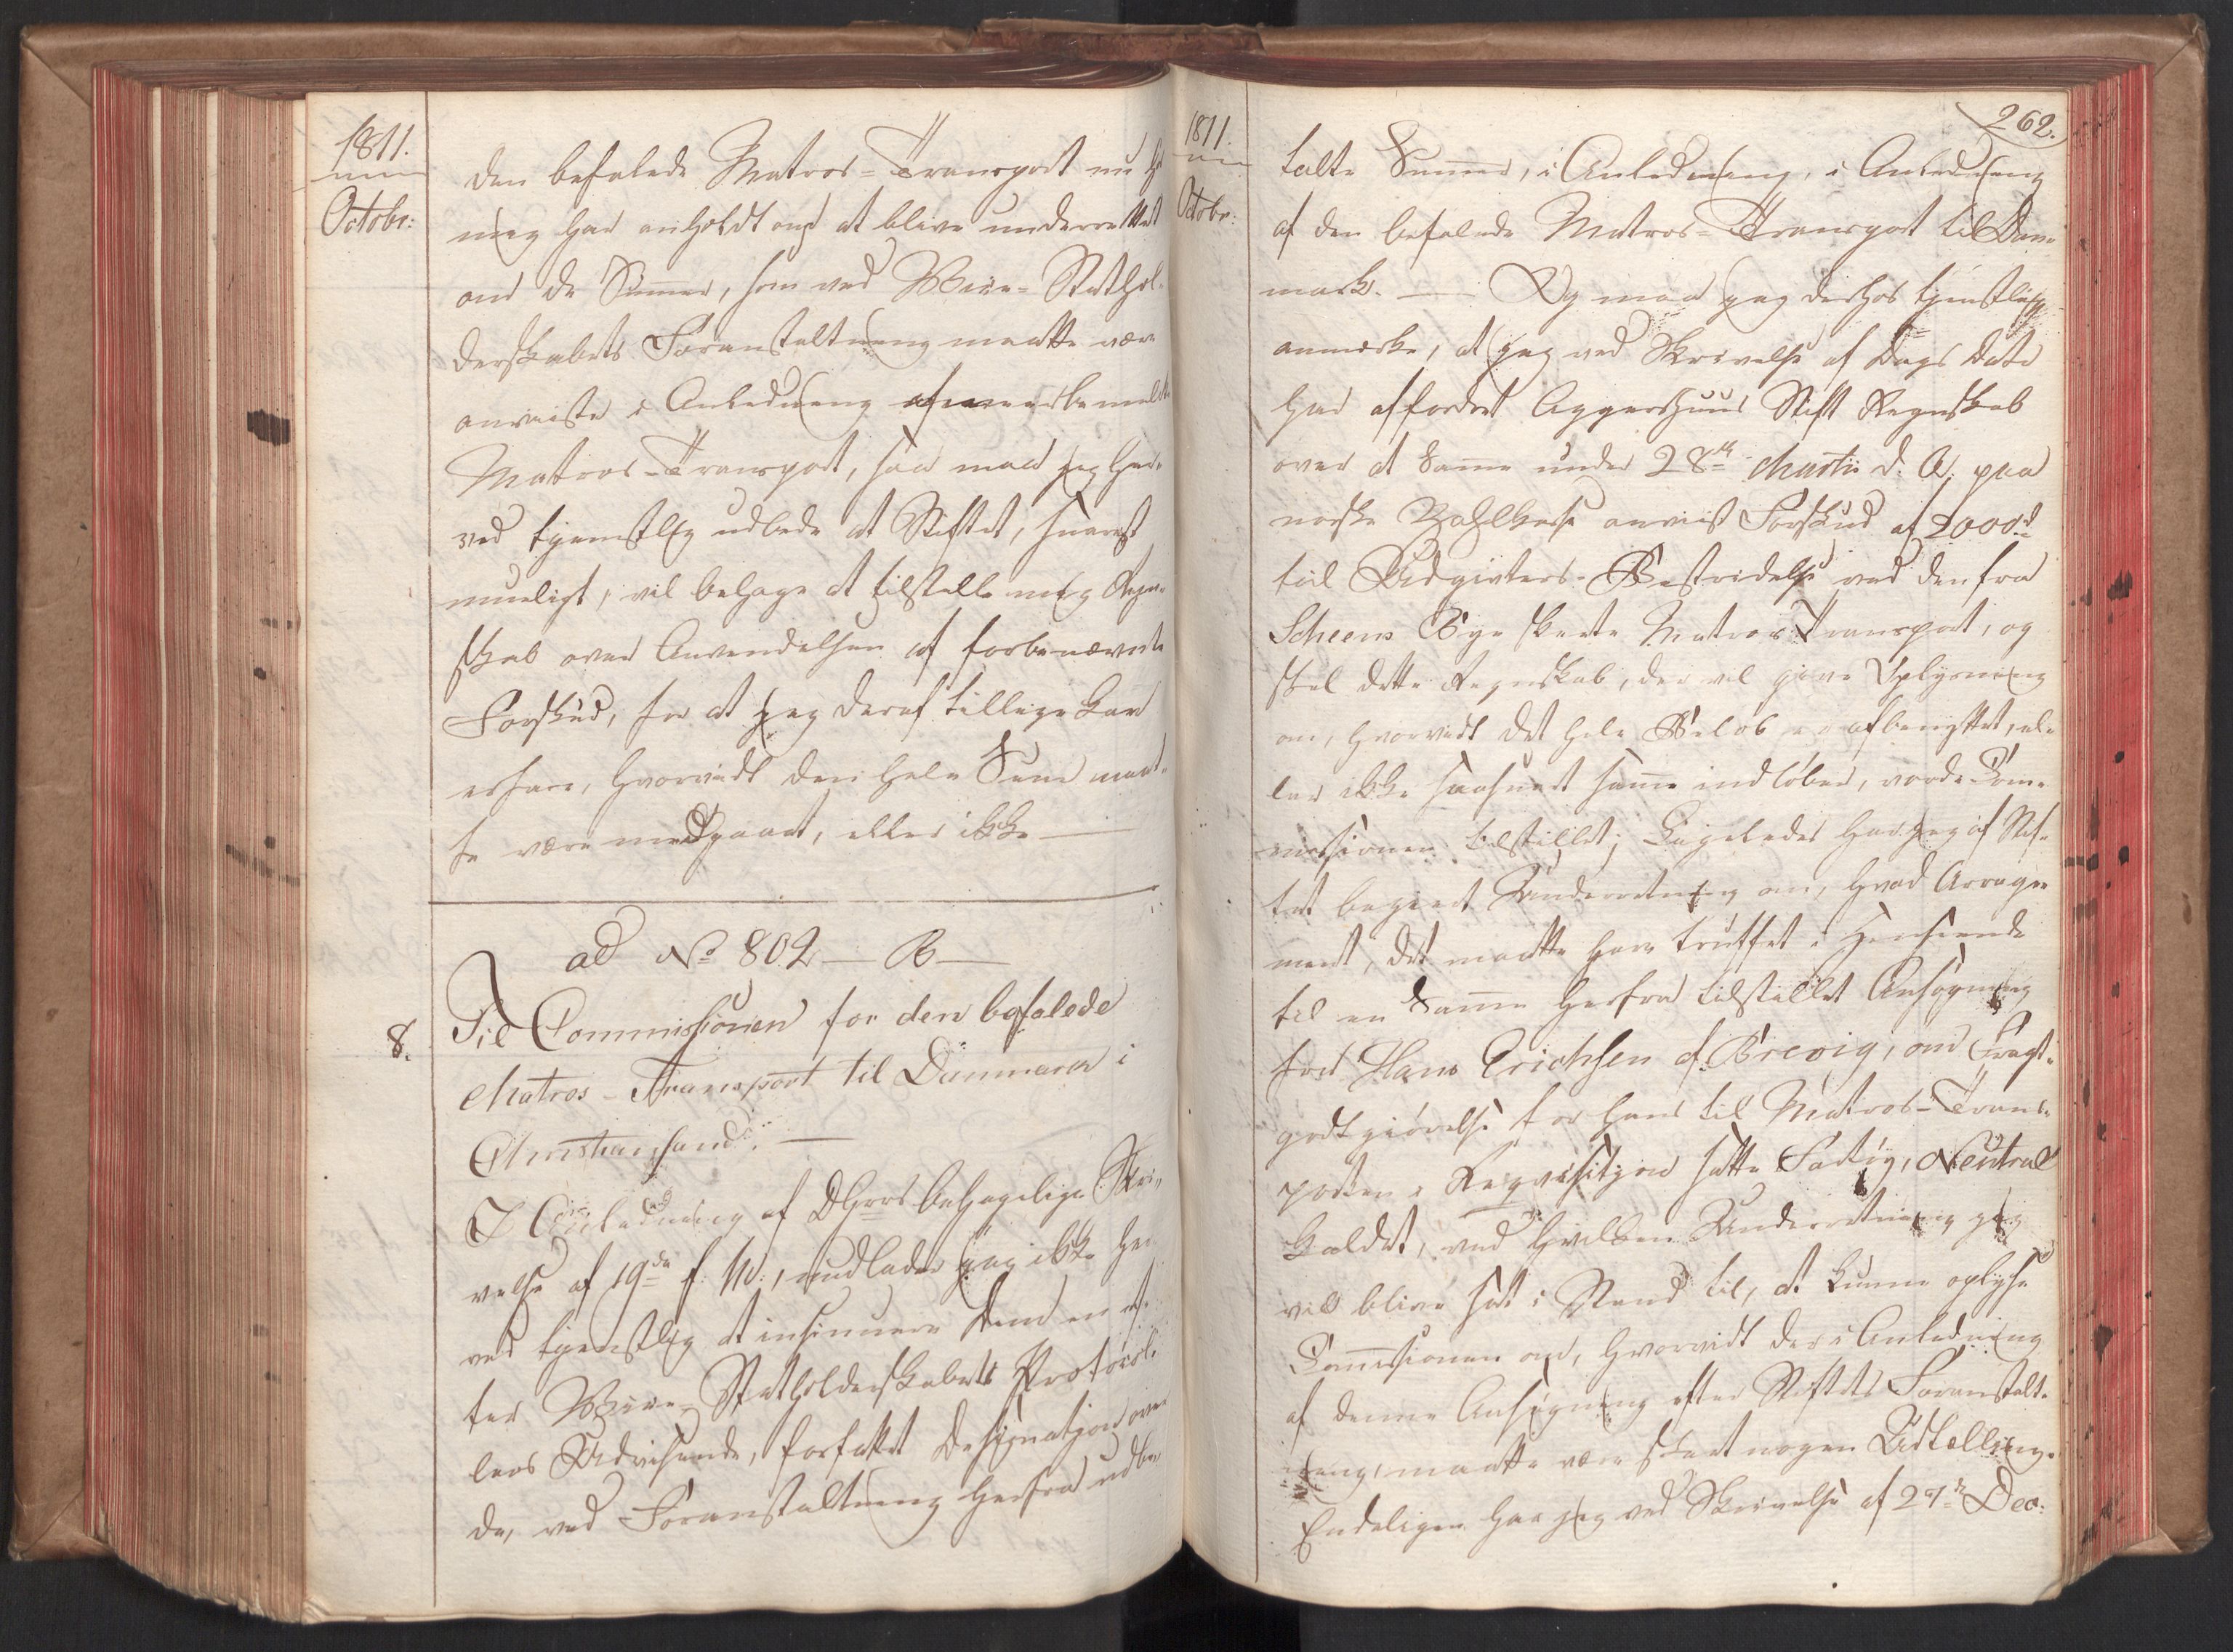 1811.
Octobr:
den befalede Matros-Transport nu hos
mig har anholdt om at blive underrettet
om de Summer, som ved Vice-Stathol-
derskabets Foranstaltning maatte være
anviiste i Anledning af meerbemeldte
Matros-Transport, saa maa jeg her-
ved tjenstlig udbede at Stiftet, snarest
mueligt, vil behage at tilstille mig Regn-
skab over Anvendelsen af forbenævnte
Forskud, for at jeg deraf tillige kan
erfare, hvorvidt den hele Sum maat-
te være medgaaet, eller ikke —
ad No 802 — B —
8.
Til Commissionen for den befalede
Matros-Transport til Danmark i
Christiansand. —
I Anledning af DHrrs behagelige Skri-
velse af 19de f. M., undlader jeg ikke her-
ved tjenstlig at insinuere Dem en ef-
ter Vice-Statholderskabets Protocol-
lers Udvisende, forfattet Designation over
de, ved Foranstaltning herfra udbe-
1811.
Octobr:
262.
talte Summer, i Anledning, i Anledning
af den befalede Matros-Transport til Dan-
mark. — Og maa jeg derhos tjenstligst
anmærke, at jeg ved Skrivelse af Dags Dato
har affordret Aggershuus Stift Regnskab
over et samme under 28de Martii d. A. paa
norske Zahlkasse anviist Forskud af 2000 rd
til Udgivters-Bestridelse ved den fra
Scheens Bye skeete Matros-Transport, og
skal dette Regnskab, der vil give Oplysning
om, hvorvidt det hele Beløb er afbenyttet, el-
ler ikke saasnart samme indløber, vorde Com-
missionen tilstillet; Ligeledes har jeg af Stif-
tet begiert Underretning om, hvad Arrage-
ment, det maatte have truffet i Henseende
til en samme herfra tilstillet Ansøgning
fra Hans Erichsen af Brevig, om Fragt-
godtgiørelse for hans til Matros-Trans-
porten i Reqvisitjon satte Fartøy, Neutral
kaldet, ved hvilken Underretning jeg
vil blive sat i Stand til, at kunne oplyse
Commissionen om, hvorvidt der i Anledning
af denne Ansøgning efter Stiftets Foranstalt-
ning, maatte være skeet nogen Udtælling.
Endeligen har jeg ved Skrivelse af 27de Dec: